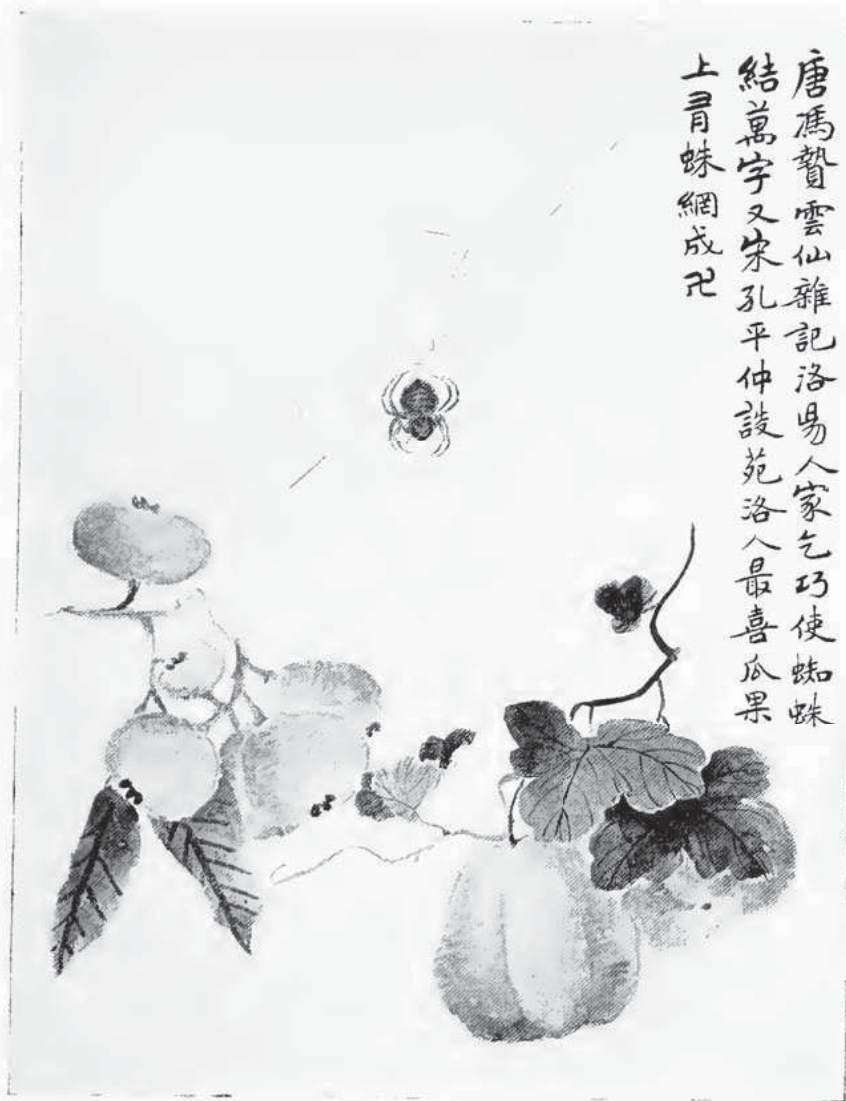 唐馮贄雲仙雜記洛昜人家乞巧使蜘蛛
結萬字又宋孔平仲談苑洛人最喜瓜果
上有蛛網成卍